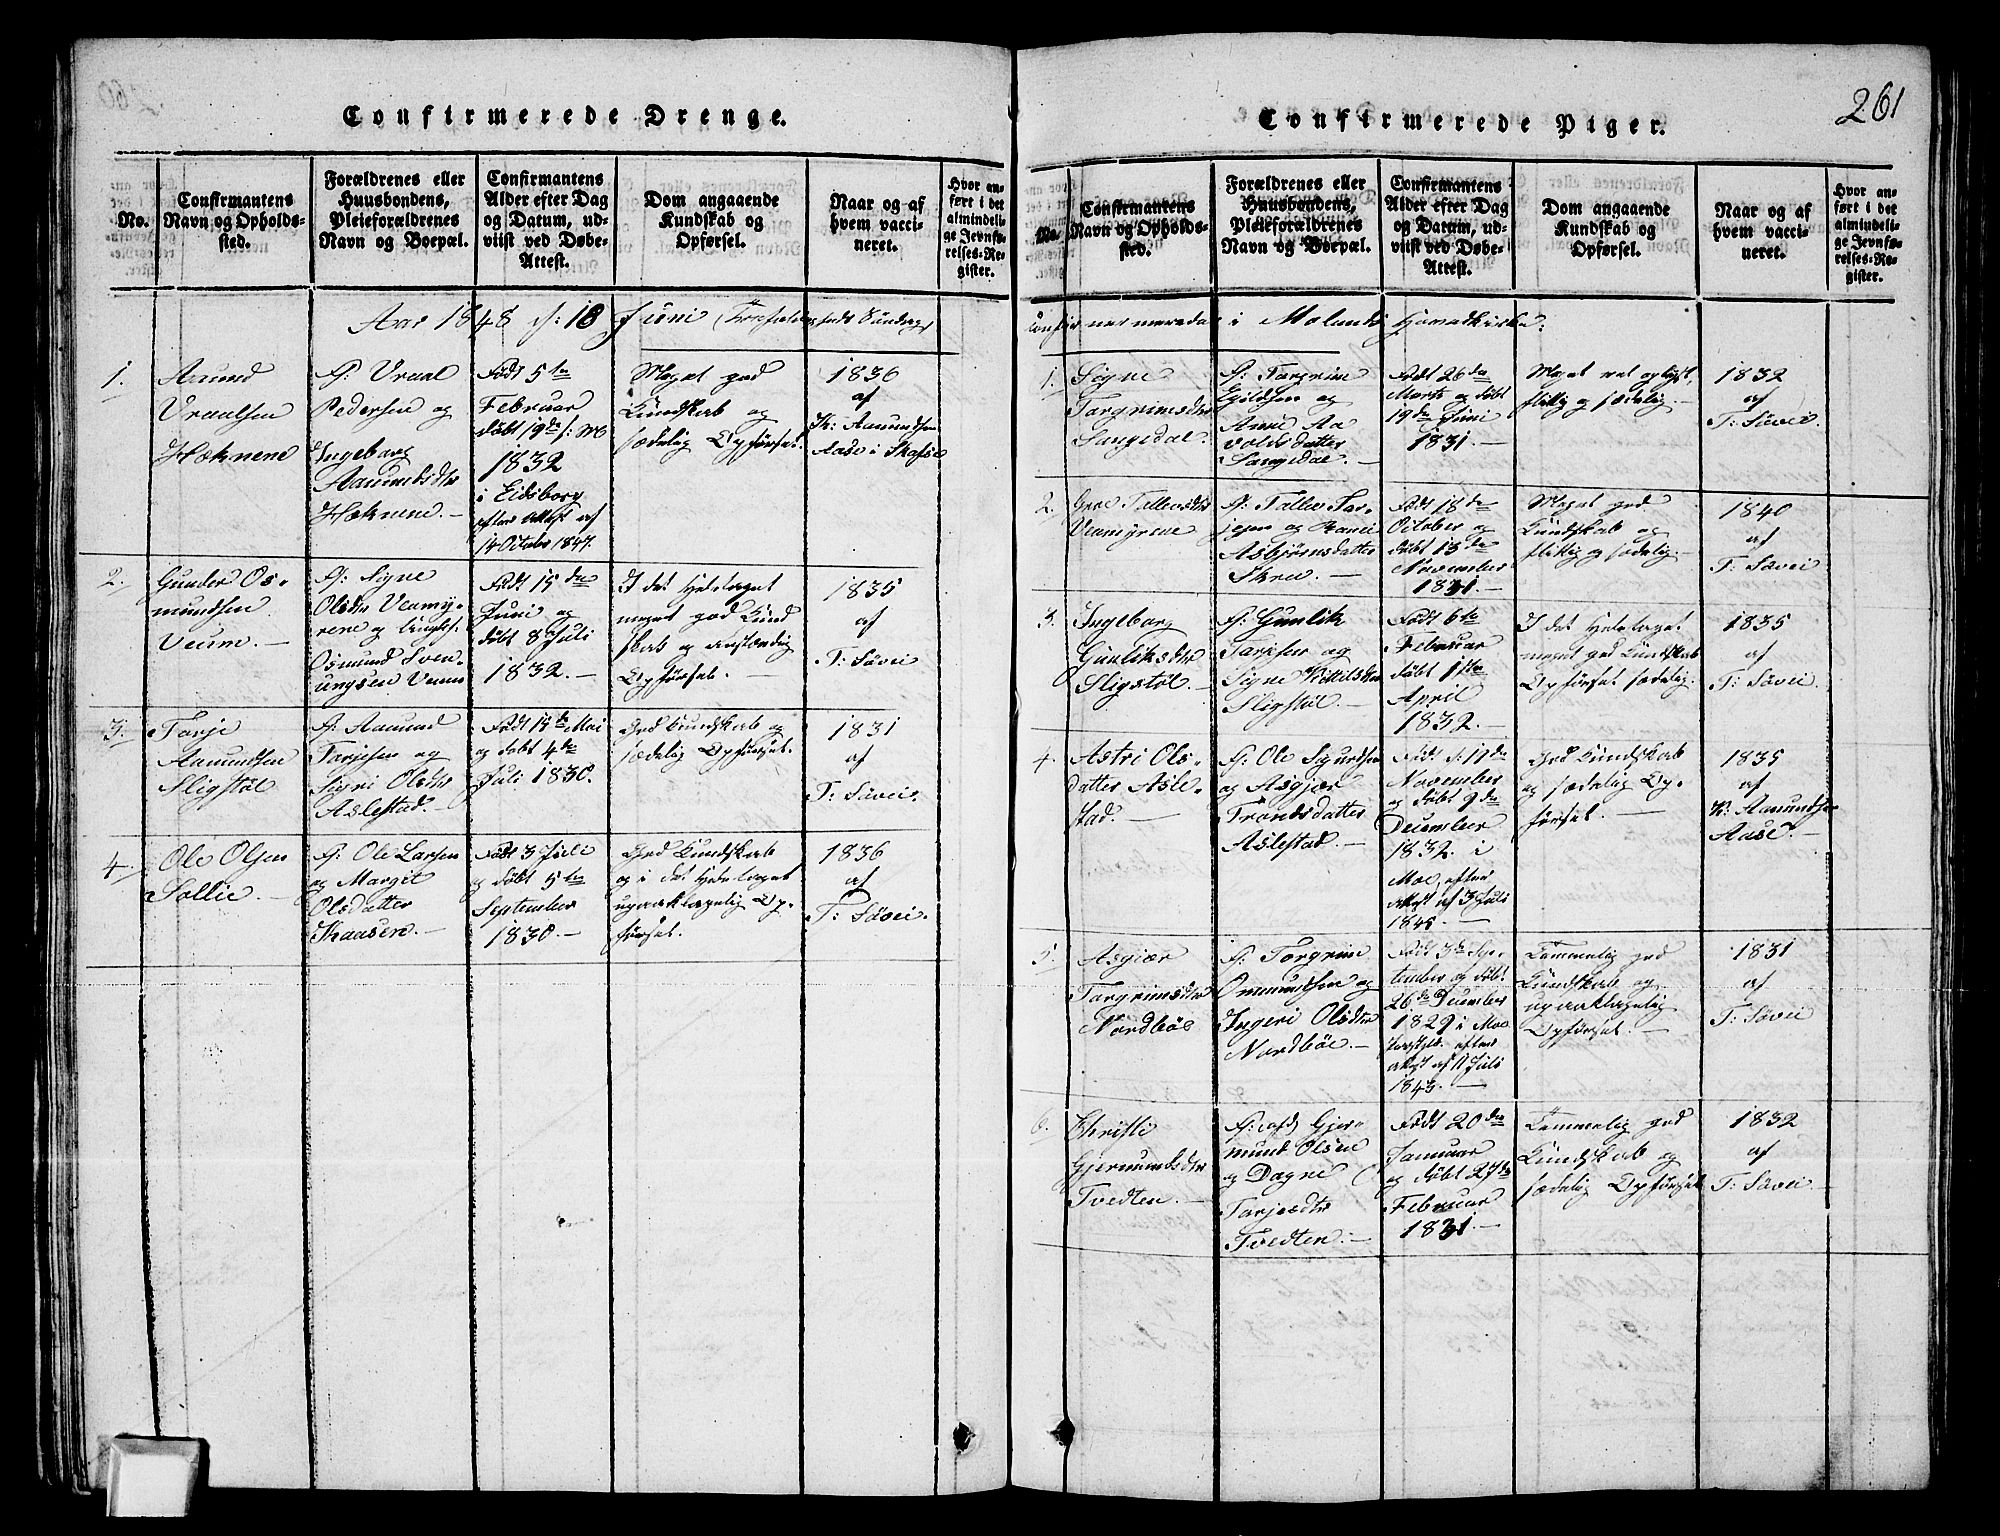 261
Confirmerede Drenge.
No.
Confirmantens
Navn og Opholds-
sted.
Forældrenes eller
Huusbondens,
Pleieforældrenes
Navn og Boepæl.
Confirmantens
Alder efter Dag
og Datum, ud-
viist ved Døbe-
Attest.
Dom angaaende
Kundskab og
Opførsel.
Naar og af
hvem vacci-
neret.
Hvor an-
ført i det
almindeli-
ge Jevnfø-
relses-Re-
gister.
Aar 1848 d: 18 Juni Søndag
1.
Aamund
Vraalsen
Hæknene
F: Vraal
Pedersen og
Ingeborg
Aamundsdtr
Hæknene.
Født 5te
Februar
døbt 19de
1832
i Eidsborg
efter Attest af
14 October 1847.
Meget god
Kundskab og
sædelig Opførsel.
1836
af
K: Aamundsen
Aase i Skafse
2.
Gunder Os-
mundsen
Veum.
F: Signe
Olsdtr Veumy-
rene og
Osmund Sven-
ungsen Veum
Født 15de
Juni og
døbt 8 Juli
1832.
I det Heletaget
meget god Kund
skab og anstændig
Opførsel.
1835
af
T: Søvei
3.
Tarje
Aamundsen
Sligstøl
F: Aamund
Tarjesen og
Sigri Olsdtr
Aslestad.
Født 15de Mai
og døbt 4de
Juli 1830.
God Kundskab og
sædelig Opførsel.
1831
af
T: Søvei.
4.
Ole Olsen
Sollie.
F: Ole Larsen
og Margit
Olsdatter
Kaasen.
Født 3 Juli
og døbt 5te
September
1830.
God Kundskab
og i det Heletaget
upaaklagelig Op-
førsel.
1836
af
T: Søvei.
Confirmerede Piger.
No.
Confirmantens
Navn og Opholds-
sted.
Forældrenes eller
Huusbondens,
Pleieforældrenes
Navn og Boepæl.
Confirmantens
Alder efter Dag
og Datum, ud-
viist ved Døbe-
Attest.
Dom angaaende
Kundskab og
Opførsel.
Naar og af
hvem vacci-
neret.
Hvor an-
ført i det
almindeli-
ge Jevnfø-
relses-Re-
gister.
i Molands Hovedkirke.
1.
Signe
Torgrimsdtr
Sangedal.
F: Torgrim
Egildsen og
Anne Aa
voldsdatter
Sangedal.
Født 26de
Marts og døbt
19de Juni
1831.
Meget vel oplyst,
flittig og sædelig.
1832
af
T: Søvei.
2.
Gro Tallevsdtr
Veumyrene
F: Tallev Tar-
jesen og
Asbjørnsdatter
Skree.
Født 18de
October og
døbt 13de
November
1831.
Meget god
Kundskab og
flittig og sædelig.
1840
af
T: Søvei.
3.
Ingeborg
Gunliksdtr
Sligstøl.
F: Gunlik
Tarjesen og
Signe Kittilsdtr
Sligstøl.
Født 6te
Februar
døbt 1ste
April
1832.
I det Heletaget
meget god Kundskab
Opførsel sædelig.
1835
af
T: Søvei
4.
Astri Ols-
datter Asle-
stad.
F: Ole Sigundsen
og Asgjær
Trondsdatter
Aslestad.
Født d: 17de
November
og døbt 9de
December
1832 i
Moe, efter
Attest af 3 Juli
God Kundskab
og sædelig Op-
førsel.
1835
af
K: Aamundsen
Aase.
5.
Asgiær
Torgrimsdtr
Nordbøe
F: Torgrim
Ommundsen og
Ingeri Olsdtr
Nordbøe.
Født 3de Sep-
tember og døbt
26de December
1829 i Moe
efter
Attest af 11 Juli
1843.
Temmelig god
Kundskab og
upaaklagelig
Opførsel.
1831
af
T: Søvei
6.
Christi
Gjermundsdtr
Tvedten.
F: Gjer-
mund Olsen
og Dagne
Tarjesdtr
Tvedten.
Født 20de
Januar
og døbt 27de
Februar
1831.
Temmelig god
Kundskab og
sædelig Opførsel.
1832
af
T: Søvei